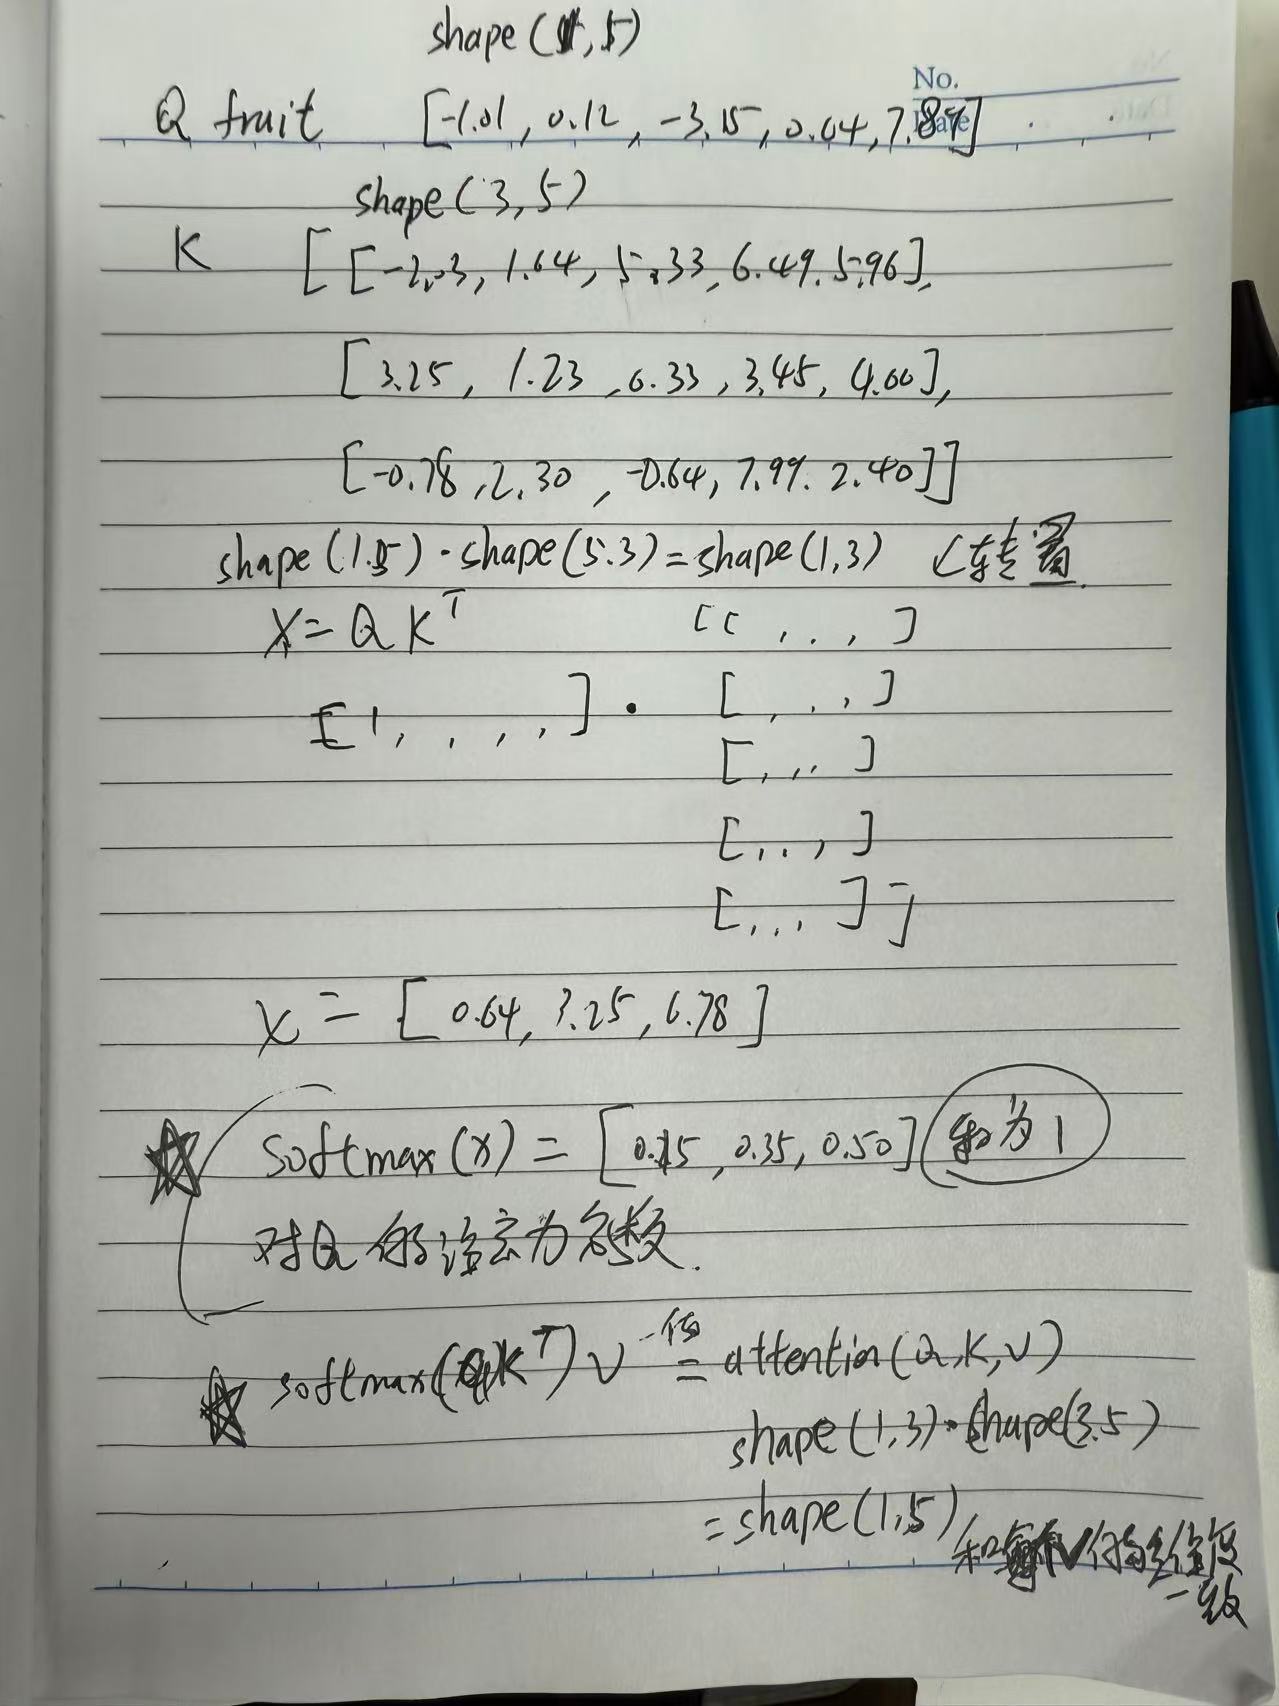 shape (1,5)
No.
Date
Q fruit [-1.01, 0.12, -3.15, 0.64, 7.89]
shape (3,5)
K [[-2.03, 1.64, 5.33, 6.49, 5.96],
[3.25, 1.23, 6.33, 3.45, 4.00],
[-0.78, 2.30, -0.64, 7.99. 2.40]]
shape (1.5) · shape (5.3) = shape (1,3) 转置
X = Q K^T [[ , . . , ]
[ , , , , ] · [ , . , ]
[ , , , ]
[ , . , ]
[ , , , ] ]
X = [0.64, 3.25, 6.78]
softmax (x) = [0.15, 0.35, 0.50] 和为 1
对Q的注意力参数.
softmax(QK^T) V = attention (Q, K, V) 值
shape (1,3) · shape(3.5)
= shape (1,5) 和 V 维度
一致